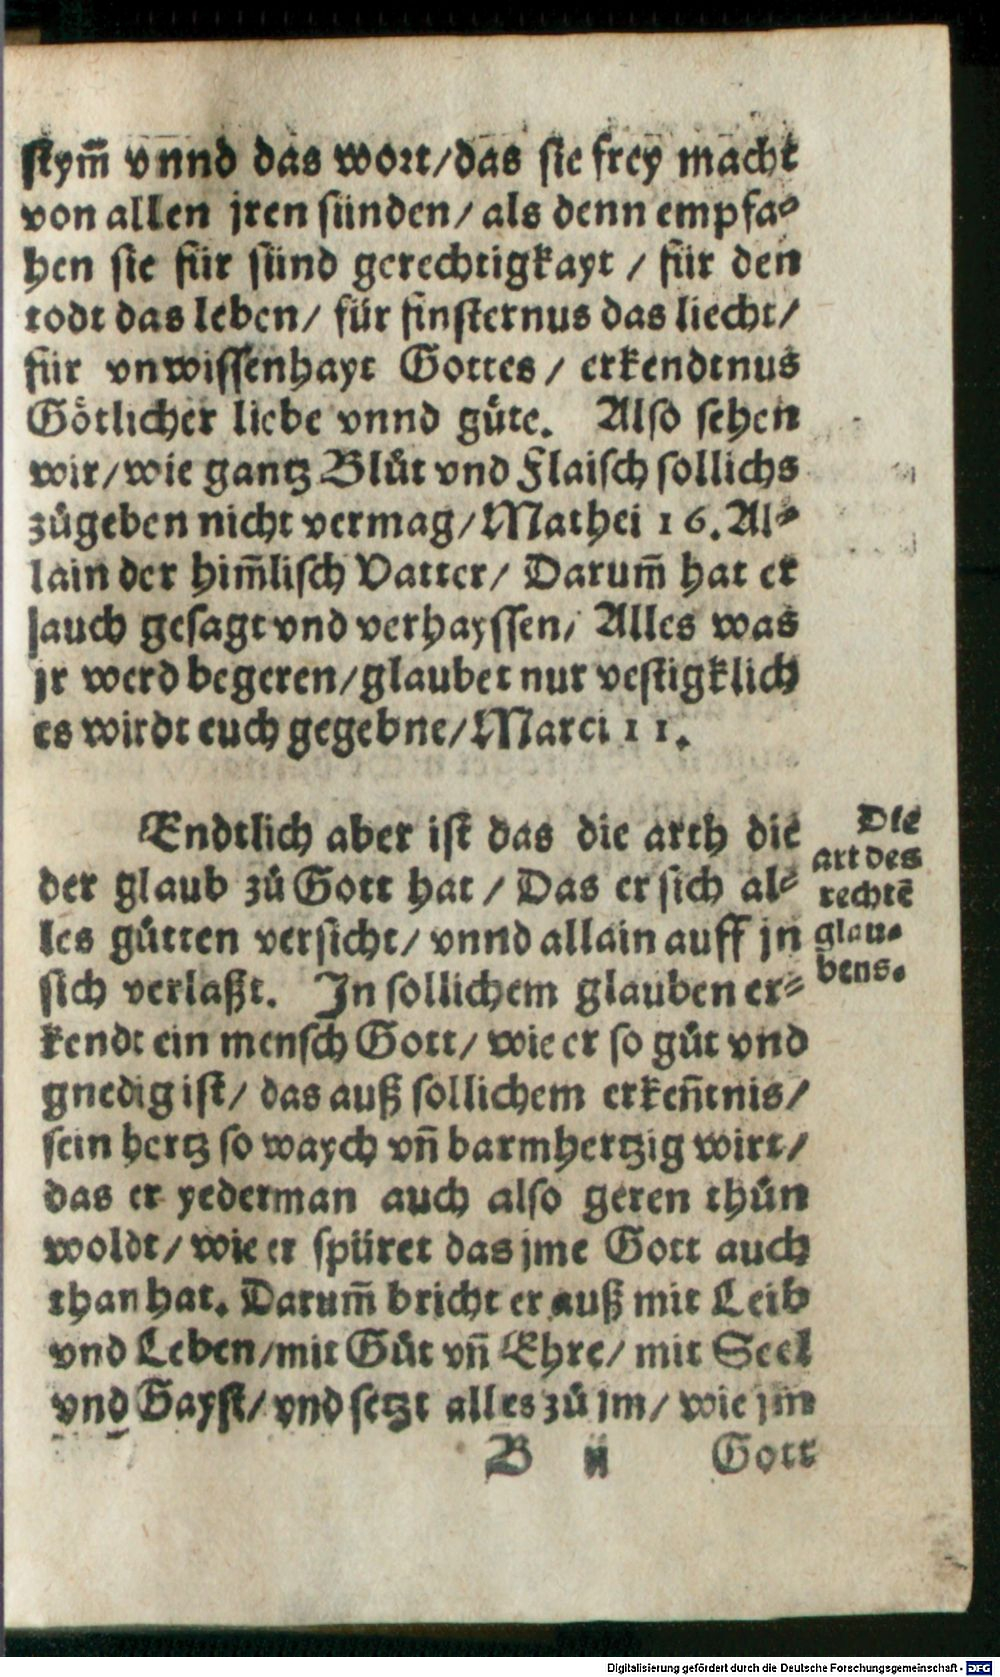 stym̃ vnnd das wort/das sie frey macht
von allen jren sünden/ als denn empfa⸗
hen sie für sünd gerechtigkayt / für den
todt das leben/ für finsternus das liecht/
für vnwissenhayt Gottes / erkendtnus
Götlicher liebe vnnd gůte. Also sehen
wir/wie gantz Blůt vnd Flaisch sollichs
zůgeben nicht vermag/Mathei 16. Al⸗
lain der him̃lisch Vatter/ Darum̃ hat er
auch gesagt vnd verhayssen/ Alles was
jr werd begeren/glaubet nur vestigklich
es wirdt euch gegebne/Marci 11.
Endtlich aber ist das die arth die
der glaub zů Gott hat / Das er sich al⸗
les gůtten versicht/ vnnd allain auff jn
sich verlaßt. In sollichem glauben er⸗
kendt ein mensch Gott/ wie er so gůt vnd
gnedig ist/ das auß sollichem erken̄tnis/
sein hertz so waych vn̄ barmhertzig wirt/
das er yederman auch also geren thůn
woldt/ wie er spüret das jme Gott auch
than hat. Darum̃ bricht er auß mit Leib
vnd Leben/mit Gůt vn̄ Ehre/ mit Seel
vnd Gayst/ vnd setzt alles zů jm/ wie jm
B ij Gott
Die
art des
rechtē
glau⸗
bens.
Digitalisierung gefördert durch die Deutsche Forschungsgemeinschaft - DFG